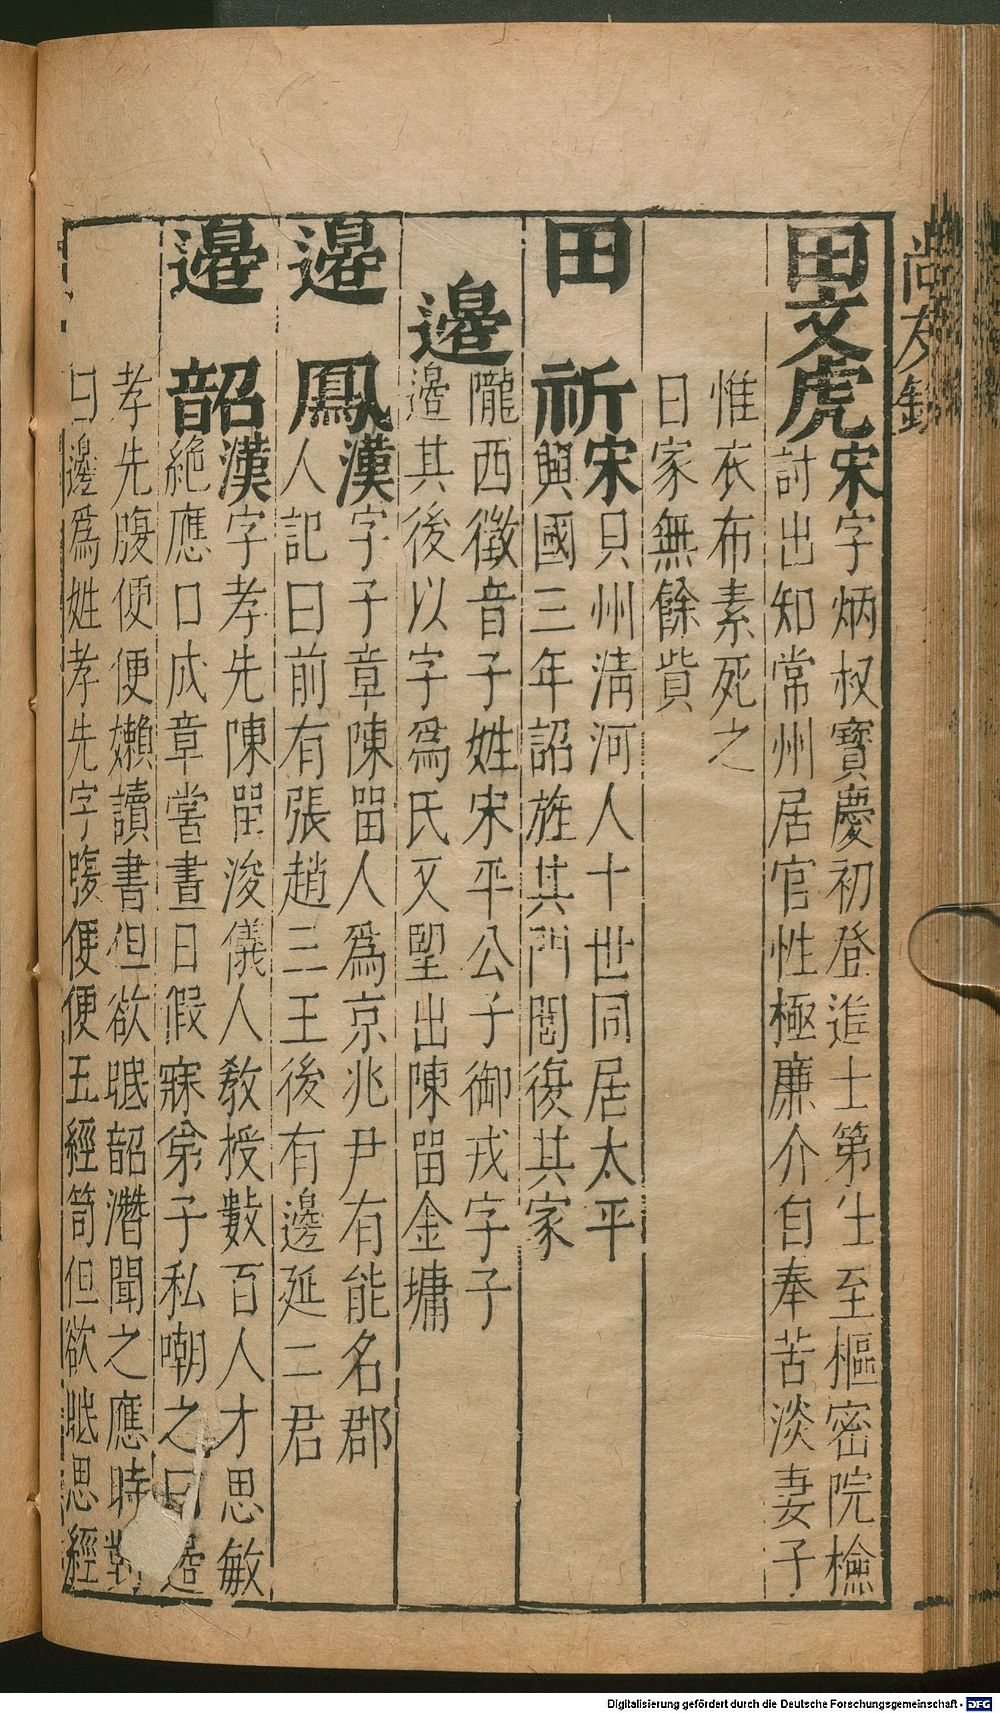 尚友錄
田文虎宋字炳叔寶慶初登進士第仕至樞密院檢
討出知常州居官性極廉介自奉苦淡妻子
惟衣布素死之
日家無餘貲
田祈宋貝州清河人十世同居太平
興國三年詔旌其門閭復其家
邊隴西徵音子姓宋平公子御戎字子
邊其後以字爲氏又望出陳留金墉
邊鳳漢字子章陳留人爲京兆尹有能名郡
人記曰前有張趙三王後有邊延二君
邊韶漢字孝先陳留浚儀人敎授數百人才思敏
絶應口成章嘗晝日假寐弟子私嘲之曰邊
孝先腹便便嬾讀書但欲眠韶潛聞之應時對
曰邊爲姓孝先字腹便便五經笥但欲眠思經
Digitalisierung gefördert durch die Deutsche Forschungsgemeinschaft - DFG